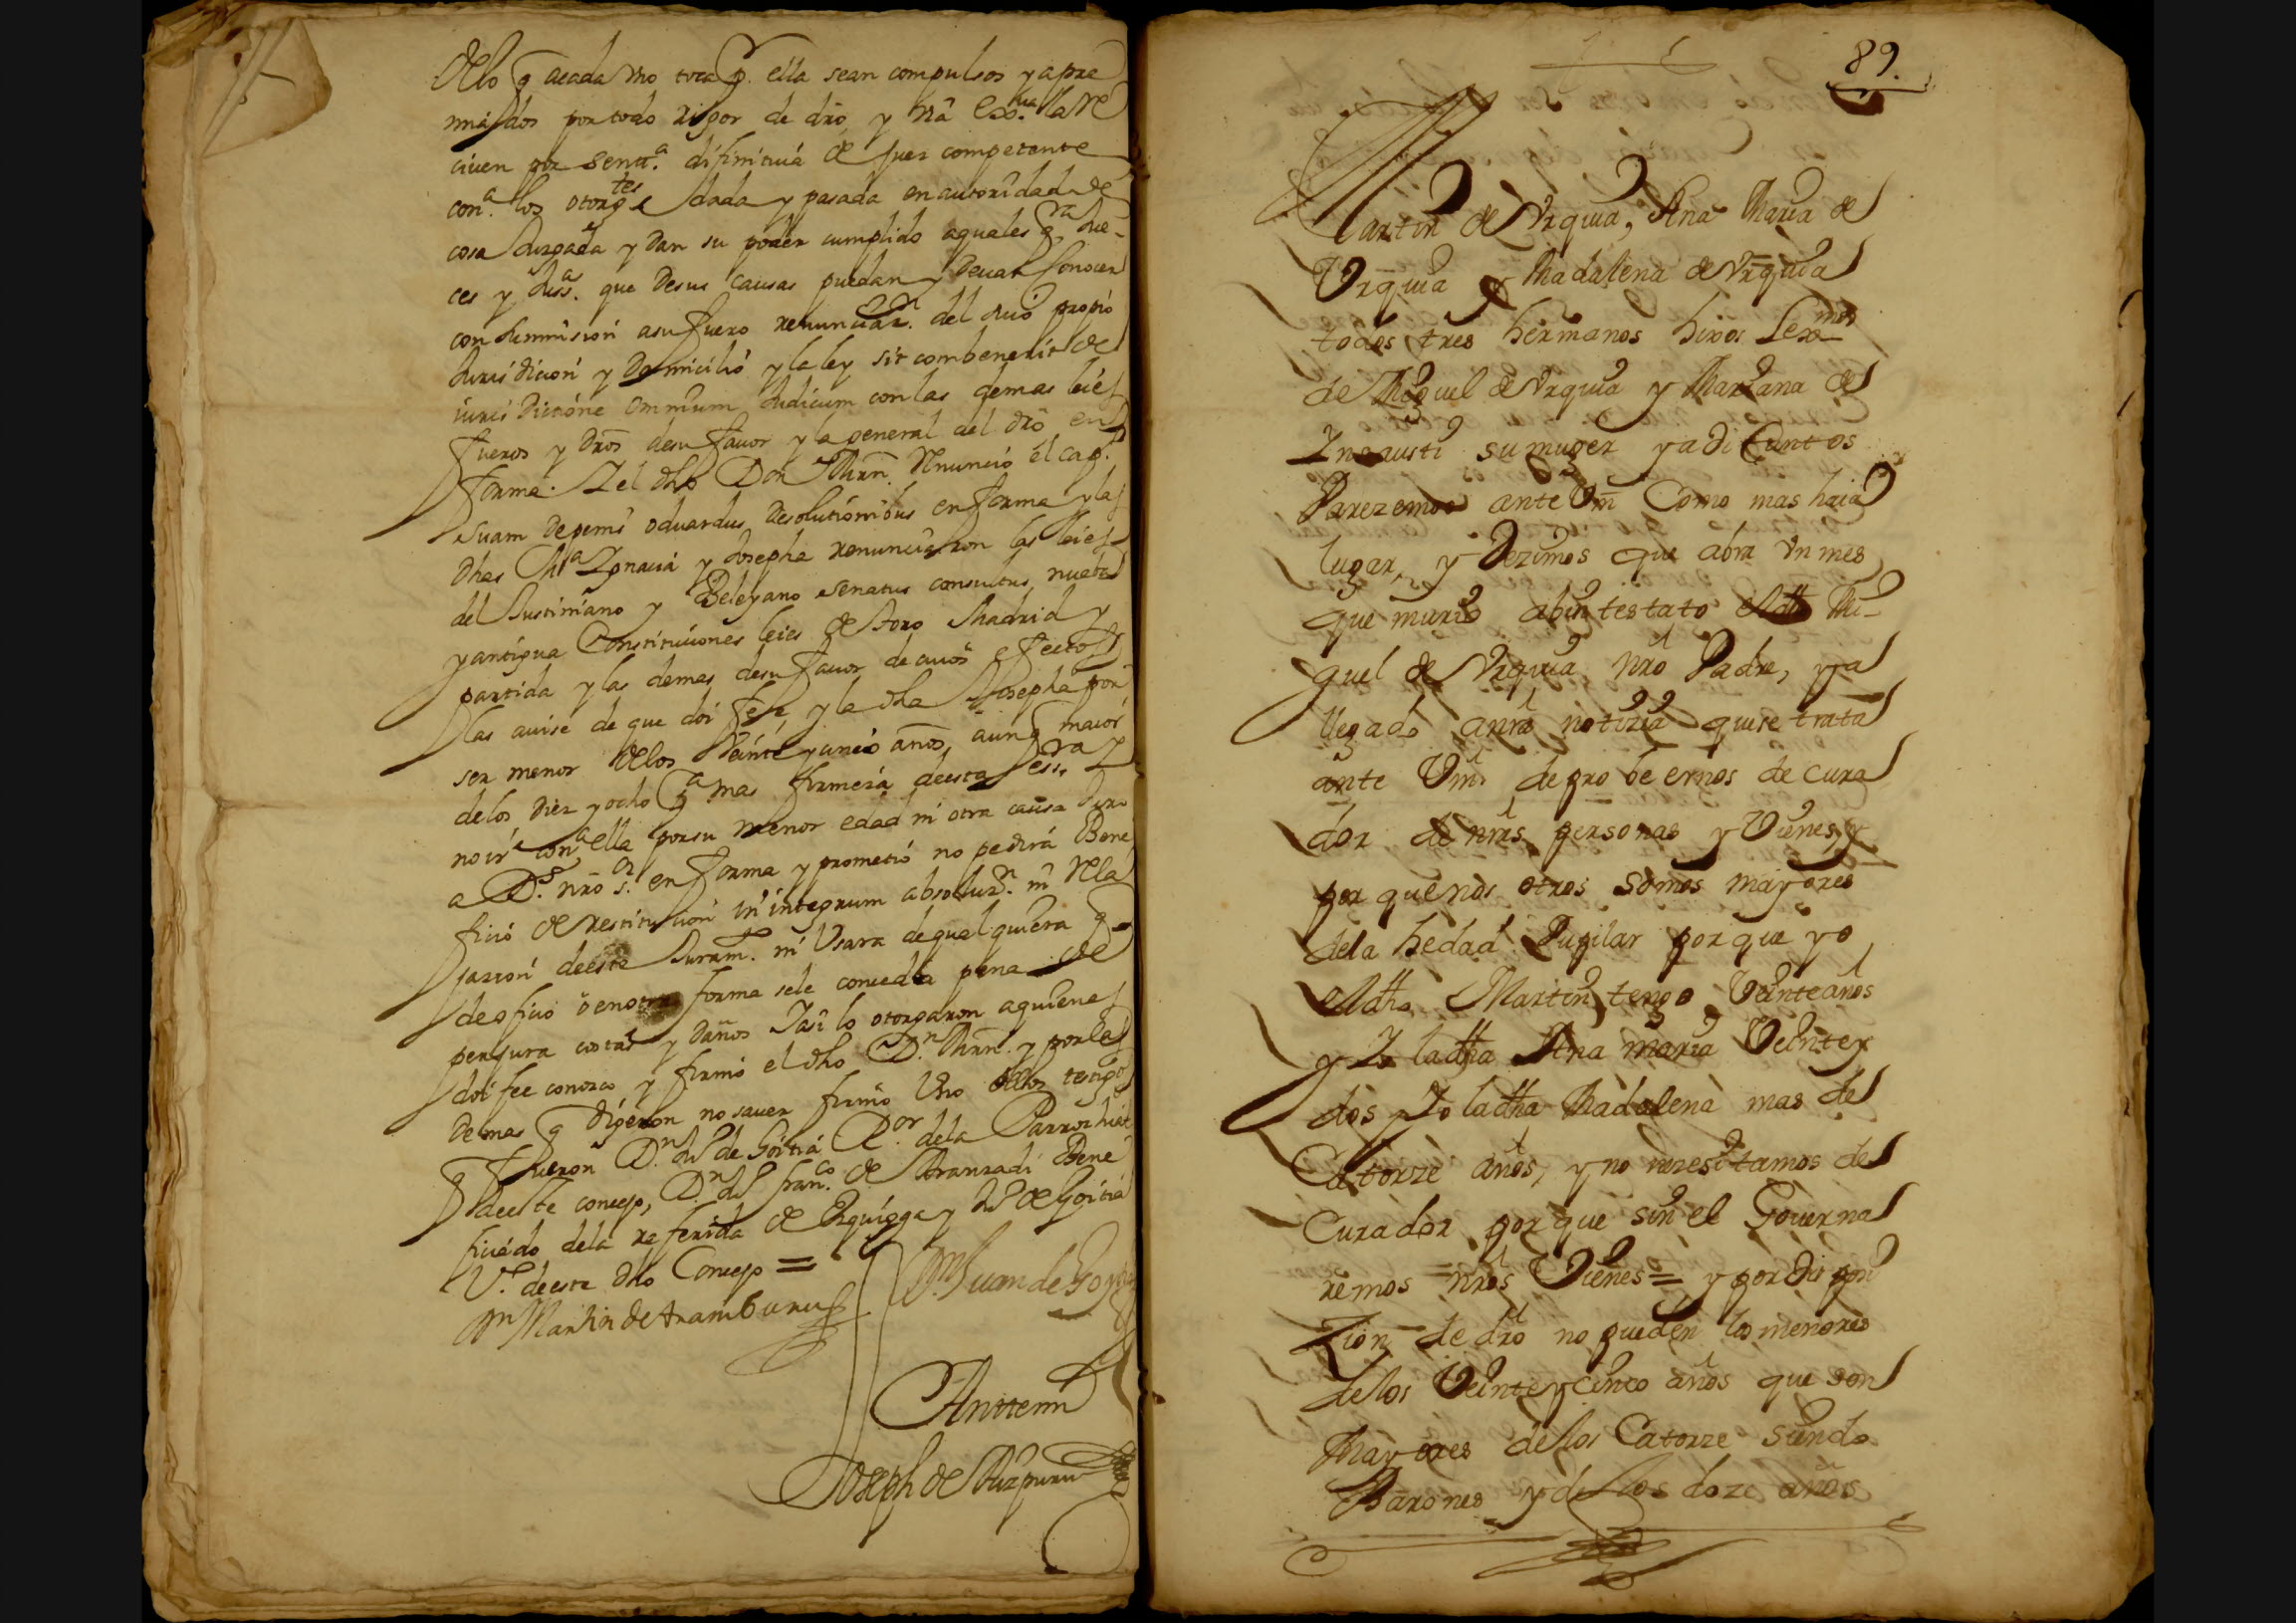 dello q̃ acada vno toca p. ella sean compulsos y apre
miados por todo rigor de dro, y nrã exon.ª la re
ciuen por sentt.ª difinitiua de Juez competente
con.ª los otorg.tes dada y pasada en autoridad de
cosa Jurgada y dan su poder cumplido aquales q.ra Jue-
ces y Juss.as que desus causas puedan y deuan Conocer
con Summision asu fuero renunciaz.n del suio propio
Jurisdicion y Domicilio y la ley sit combenerit de
iurisdictione omnium Judicum con las demas leies
fueros y dros̃ desu fauor y la general del dro en
forma. Y el dho Don Mrñ. Renuncio el cap.
Suam de penis oduardus desolutionibus en forma y las
dhas M.ª Ygnacia y Josepha renunciaron las leies
del Justiniano y Beleyano senatus consultus, nueba
y antigua Constituciones leies de Toro Madrid y
partida y las demas desu fauor de cuios efectos
las auise de que doi fee, y la dha Josepha por
ser menor delos veinte y cinco años, aunq̃ maior
delos diez y ocho p.ª mas firmeza deesta ess.ra y
no ir con.ª ella por su menor edad ni otra causa Juro
a D.s nrõ s.or en forma y prometio no pedirá Bene
ficio de restitucion in integrum absoluz.n ni rela
jazion deeste Juram.to ni Vsara de qual quiera q̃
de oficio o en otra forma sele conceda pena de
perjura costas y daños Y asi lo otorgaron aquienes
doi fee conozco y firmó el dho D.n Mrñ. y por los
demas q̃ dijeron no sauer firmó Vno dellos testigos
q̃ fueron D.n Ju. de Goitia R.or dela Parrochial
deeste concejo, D.n Ju. fran.co de Aranzadi Bene
ficiado dela referida de Ezquioga y Ju. de Goitia
V.º deeste dho Concejo =
D.n Martin de Aramburu
D.n Juan de Goytia
Anttemi
Joseph de Aizpuru
89.
Martin de Vrquia, Ana Maria de
Vrquia y Madalena de Vrquia
todos tres hermanos hixos Lex.mos
de Miguel de Vrquia y Mariana de
Ynsausti su muger ya di funtos
Parezemos ante Vm̃ Como mas haia
lugar, y Dezimos que abra vn mes
que murio abintestato el dho Mi-
guel de Vrquia nrõ Padre, y a
llegado anrã notizia quise trata
ante Vm̃ de pro be ernos de cura
dor de nrãs personas y Vienes, y
por que nos otros somos mayores
dela hedad Pupilar por que yo
el dho Martin tengo Veinte años
y Yo la dha Ana maria Veinte y
dos Yo la dha Madalena mas de
Catorze años, y no nezesitamos de
Curador por que sin el Gouerna
remos nrõs Vienes = y por dispozi
Zion de drõ no pueden los menores
de los Veinte y cinco años que son
Mayores de los Catorze siendo
Barones y de los doze años